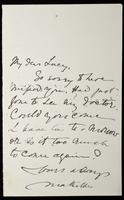 My dear Lucy.
So sorry to have
missed you. Had just
gone to see my doctor.
Could you come
&
or is it too much
to come again?
Yours always